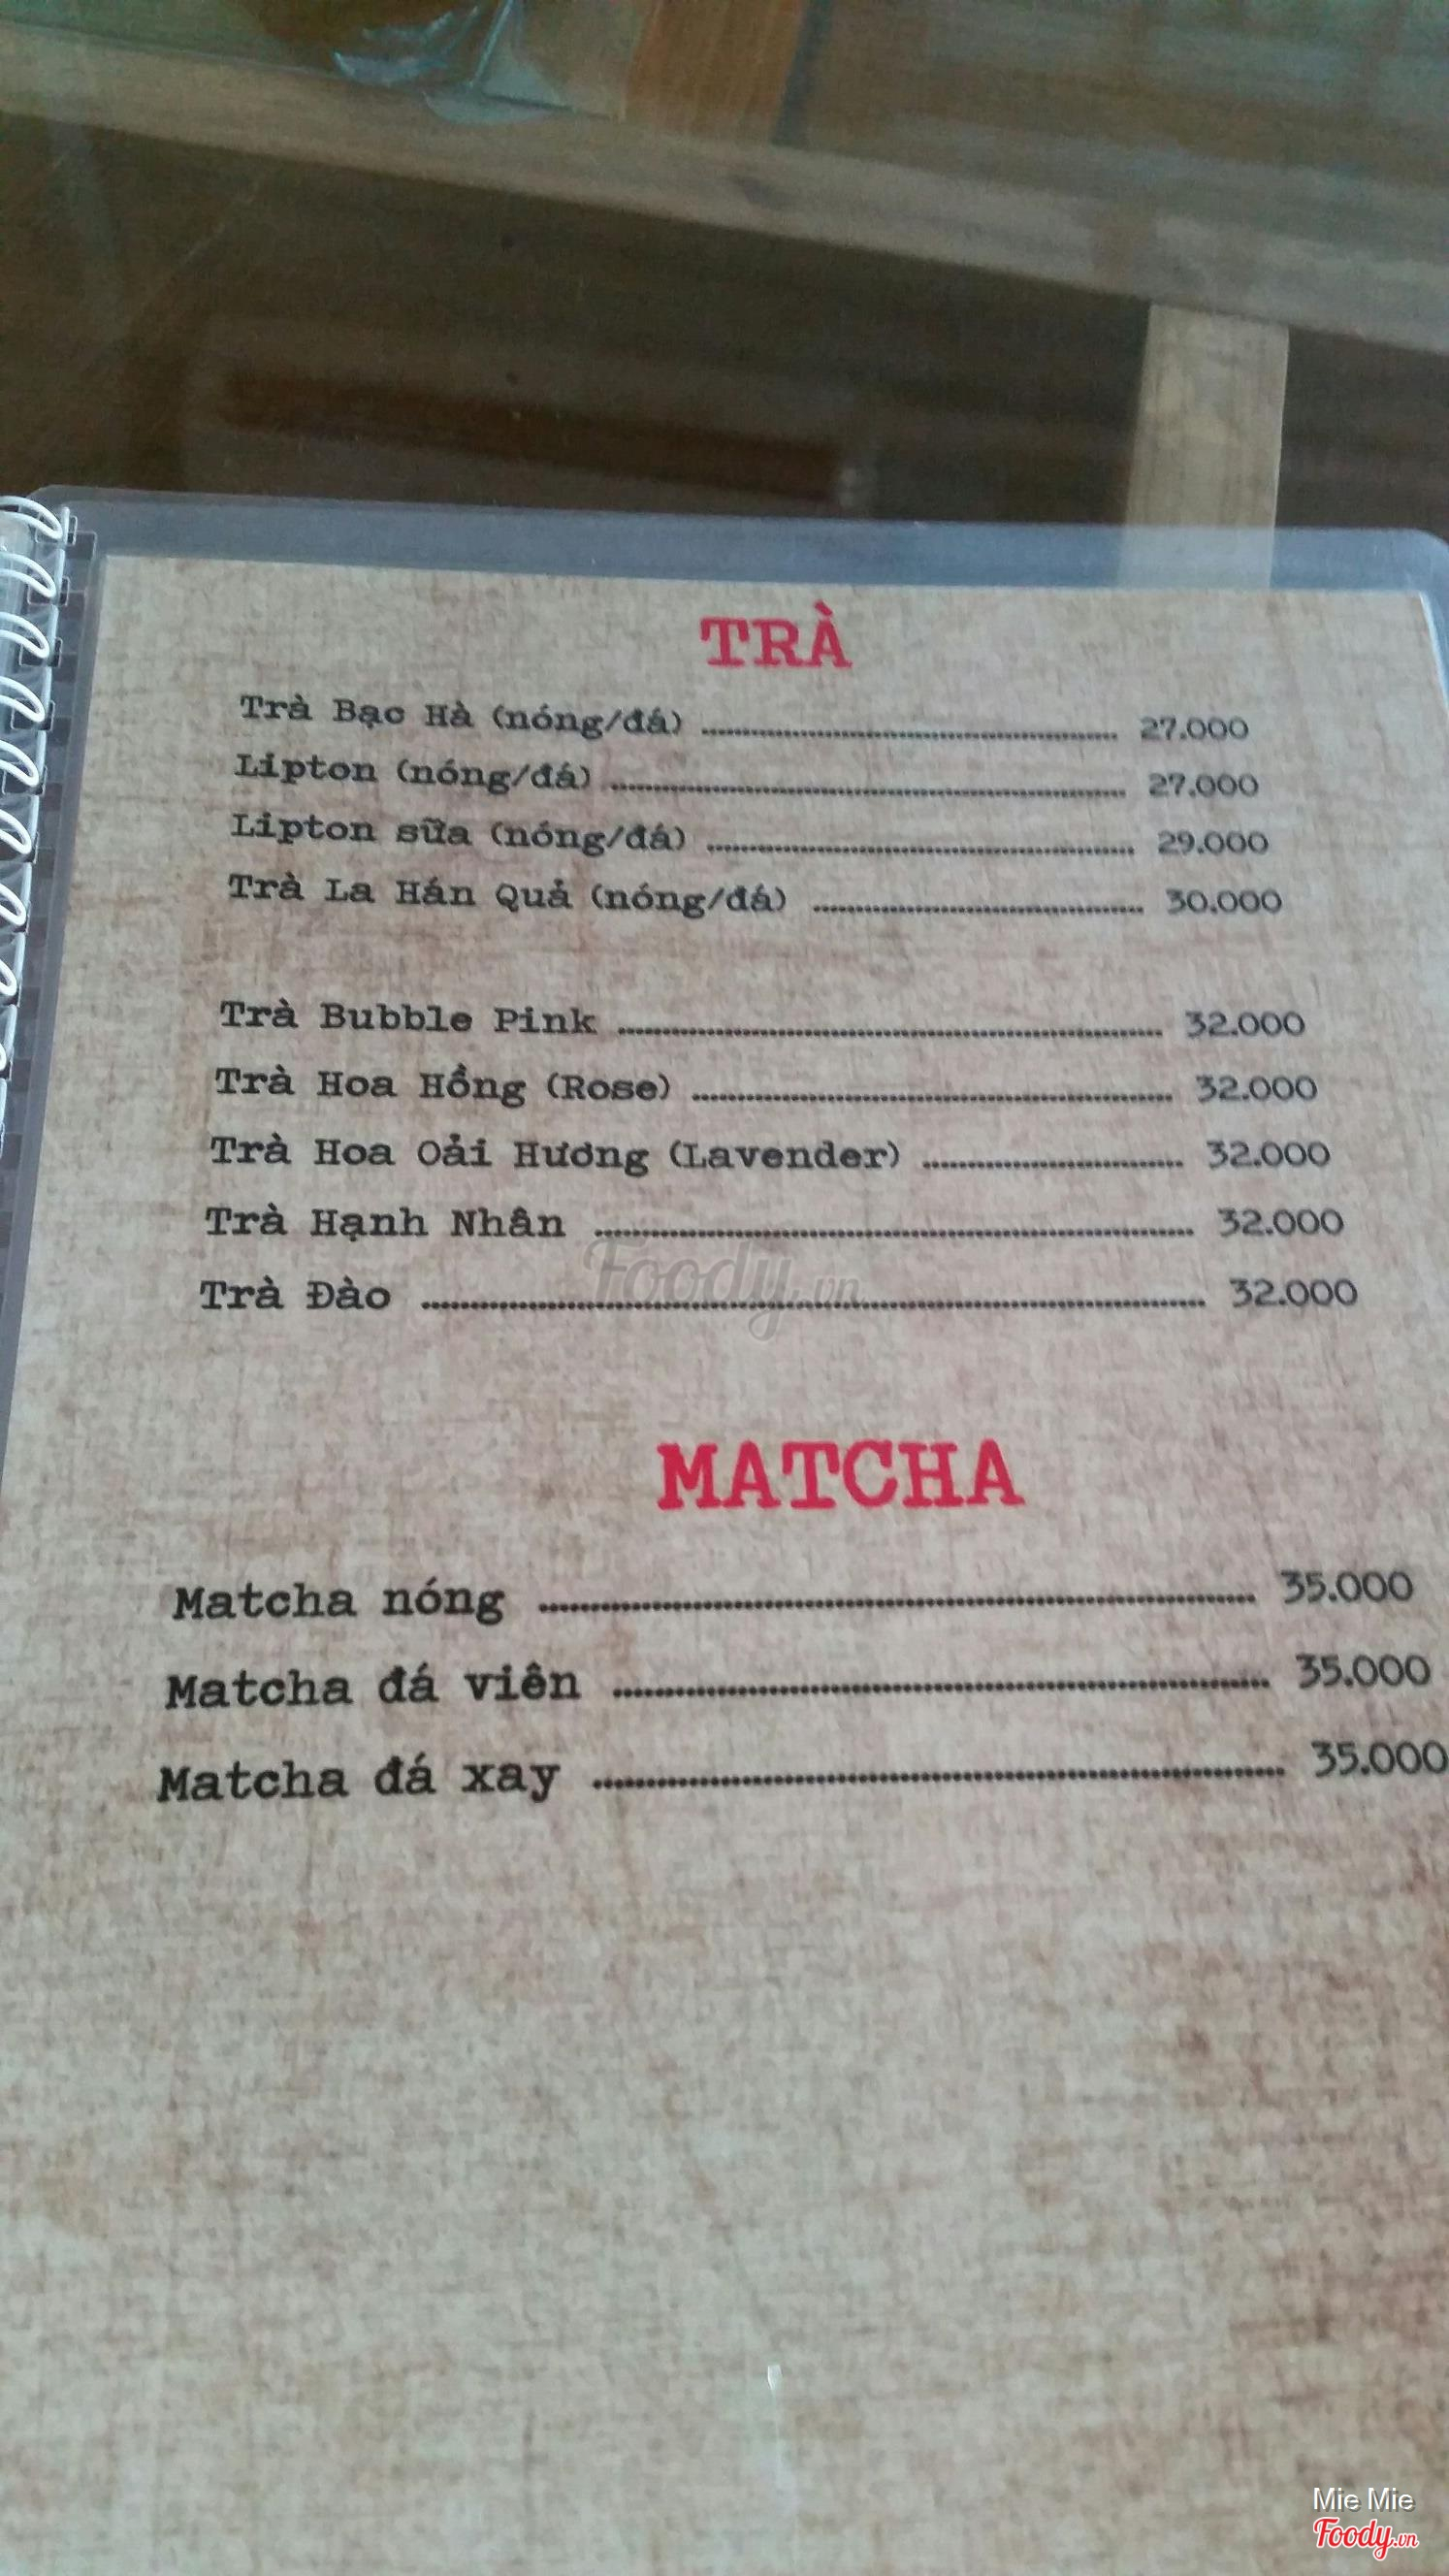 TRÀ
Trà Bạc Hà (nóng/đá) ........................ 27.000
Lipton (nóng/đá) ........................ 27.000
Lipton sữa (nóng/đá) ........................ 29.000
Trà La Hán Quả (nóng/đá) ........................ 30.000
Trà Bubble Pink ........................ 32.000
Trà Hoa Hồng (Rose) ........................ 32.000
Trà Hoa Oải Hương (Lavender) ........................ 32.000
Trà Hạnh Nhân ........................ 32.000
Trà Đào ........................ 32.000
Foody.vn
MATCHA
Matcha nóng ........................ 35.000
Matcha đá viên ........................ 35.000
Matcha đá xay ........................ 35.000
Mie Mie
Foody.vn